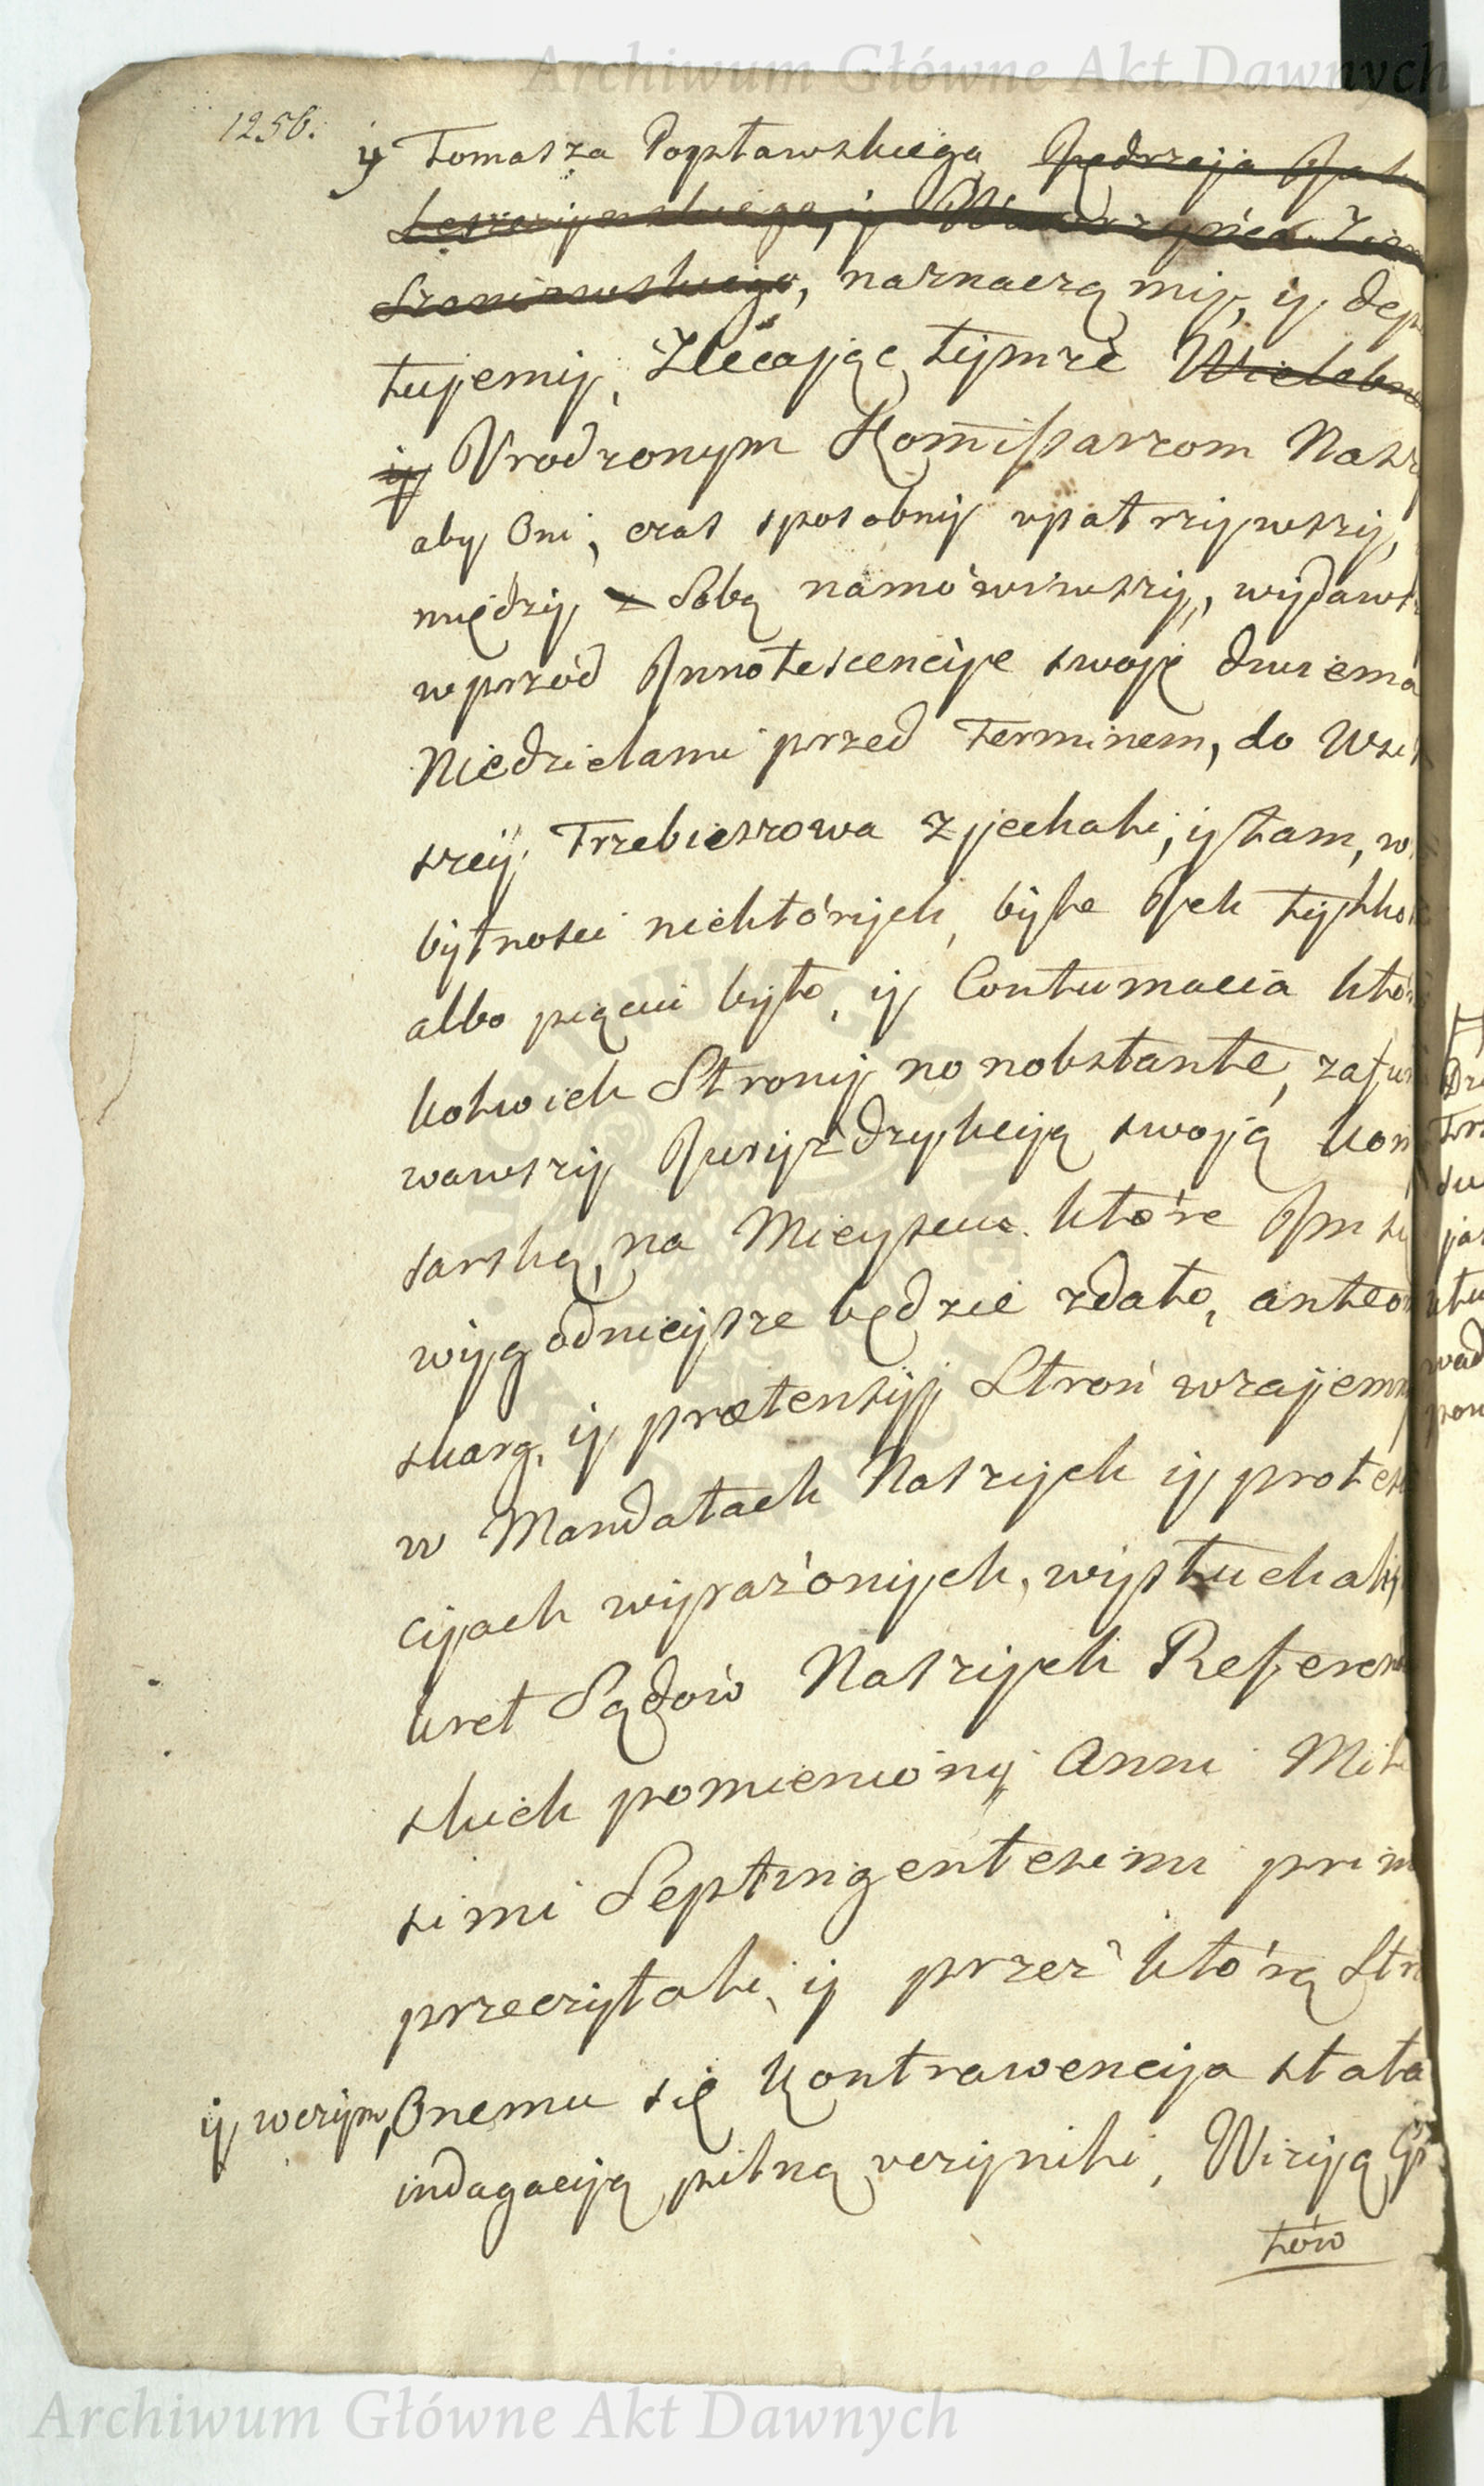 Archiwum Główne Akt Dawnych
1256.
y Tomasza Popławskiego Jędrzeja
Leszczyńskiego, y Wawrzyńca
naznaczamy, y dep
tujemy, Zlecając tymże Wielebn
y Vrodzonym Kommissarzom Nasz
aby Oni, czas sposobny vpatrzywszy,
między z Sobą namówiwszy, wydaws
wprzód Innotescencije swoję dwiema
Niedzielami przed Terminem, do Wsi
szey Trzebieszowa zjechali, y tam, w
bytności niektórych, byle Ich tylko
albo pięciu było, y Contumacia któ
kolwiek Strony nonobstante, zafun
wawszy Juryzdykciją swoją Kom
sarską, na Mieyscu które Im si
wygodnieysze będzie zdało, anteo
skarg, y prætensyj Stron wzajemn
w Mandatach Naszych y protes
cyach wyrażonych, wysłuchali,
kret Sądów Naszych Referen
skich pomieniony Anni Mil
simi Septingentesimi prim
przeczytali, y przez którą Str
y wczym, Onemu się Kontrawencija stała
indagaciją pilną vczynili, Wizyą G
tów
Archiwum Główne Akt Dawnych